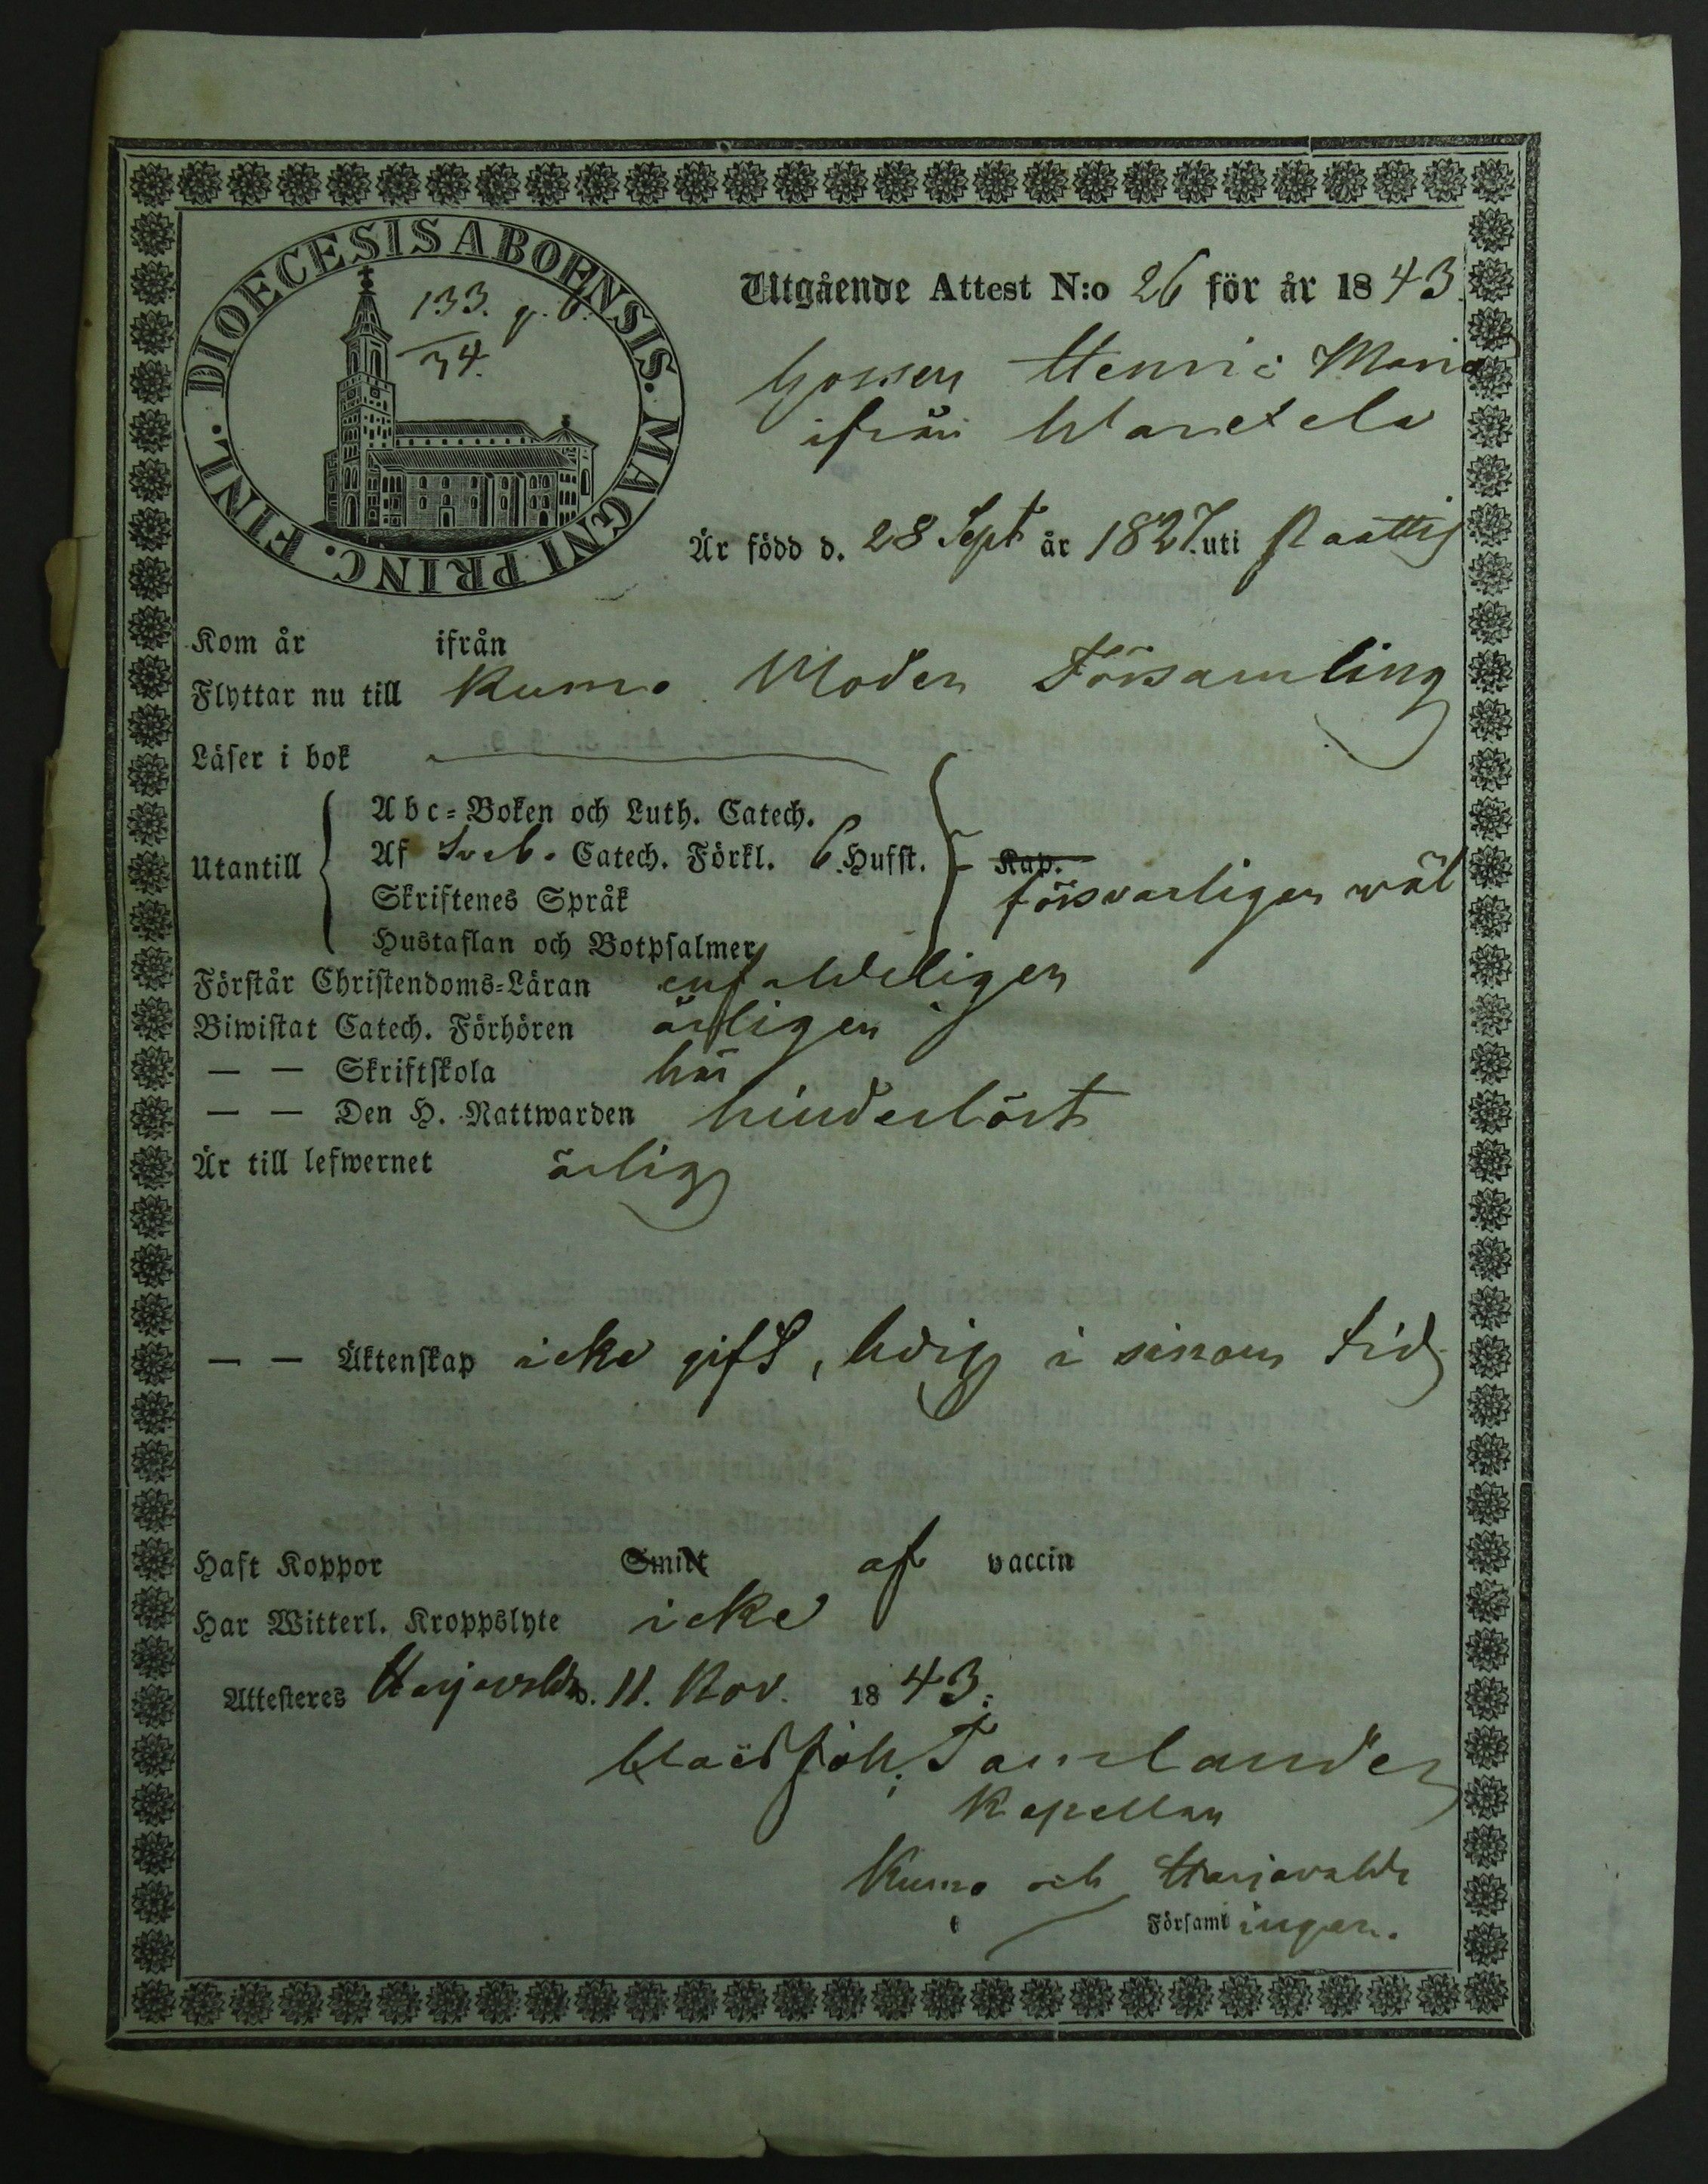 DIOECESIS ABOENSIS. MAGNI PRINC. FINL.
133.
34.
Utgående Attest N:o 26 för år 1843.
Gossen Henric
ifrån
Är född d. 28 Sept år 1827. uti
Kom år ifrån
Flyttar nu till Kumo Moder Församling
Läser i bok
Abc-Boken och Luth. Catech.
Utantill Af Sveb. Catech. Förkl. 6 Hufst. Kap.
försvarligen wäl
Skriftenes Språk
Hustaflan och Botpsalmer
Förstår Christendoms-Läran enfaldeligen
Biwistat Catech. Förhören årligen
— — Skriftskola här
— — Den H. Nattwarden
Är till lefwernet ärlig
— — Äktenskap icke gift, ledig i sinom tid
Haft Koppor Smitt af vaccin
Har Witterl. Kroppslyte icke
Attesteres Harjavalda d. 11. Nov. 1843.
Joh. Tamlander
Kapellan
Kumo och Harjavalda
Församlingar.